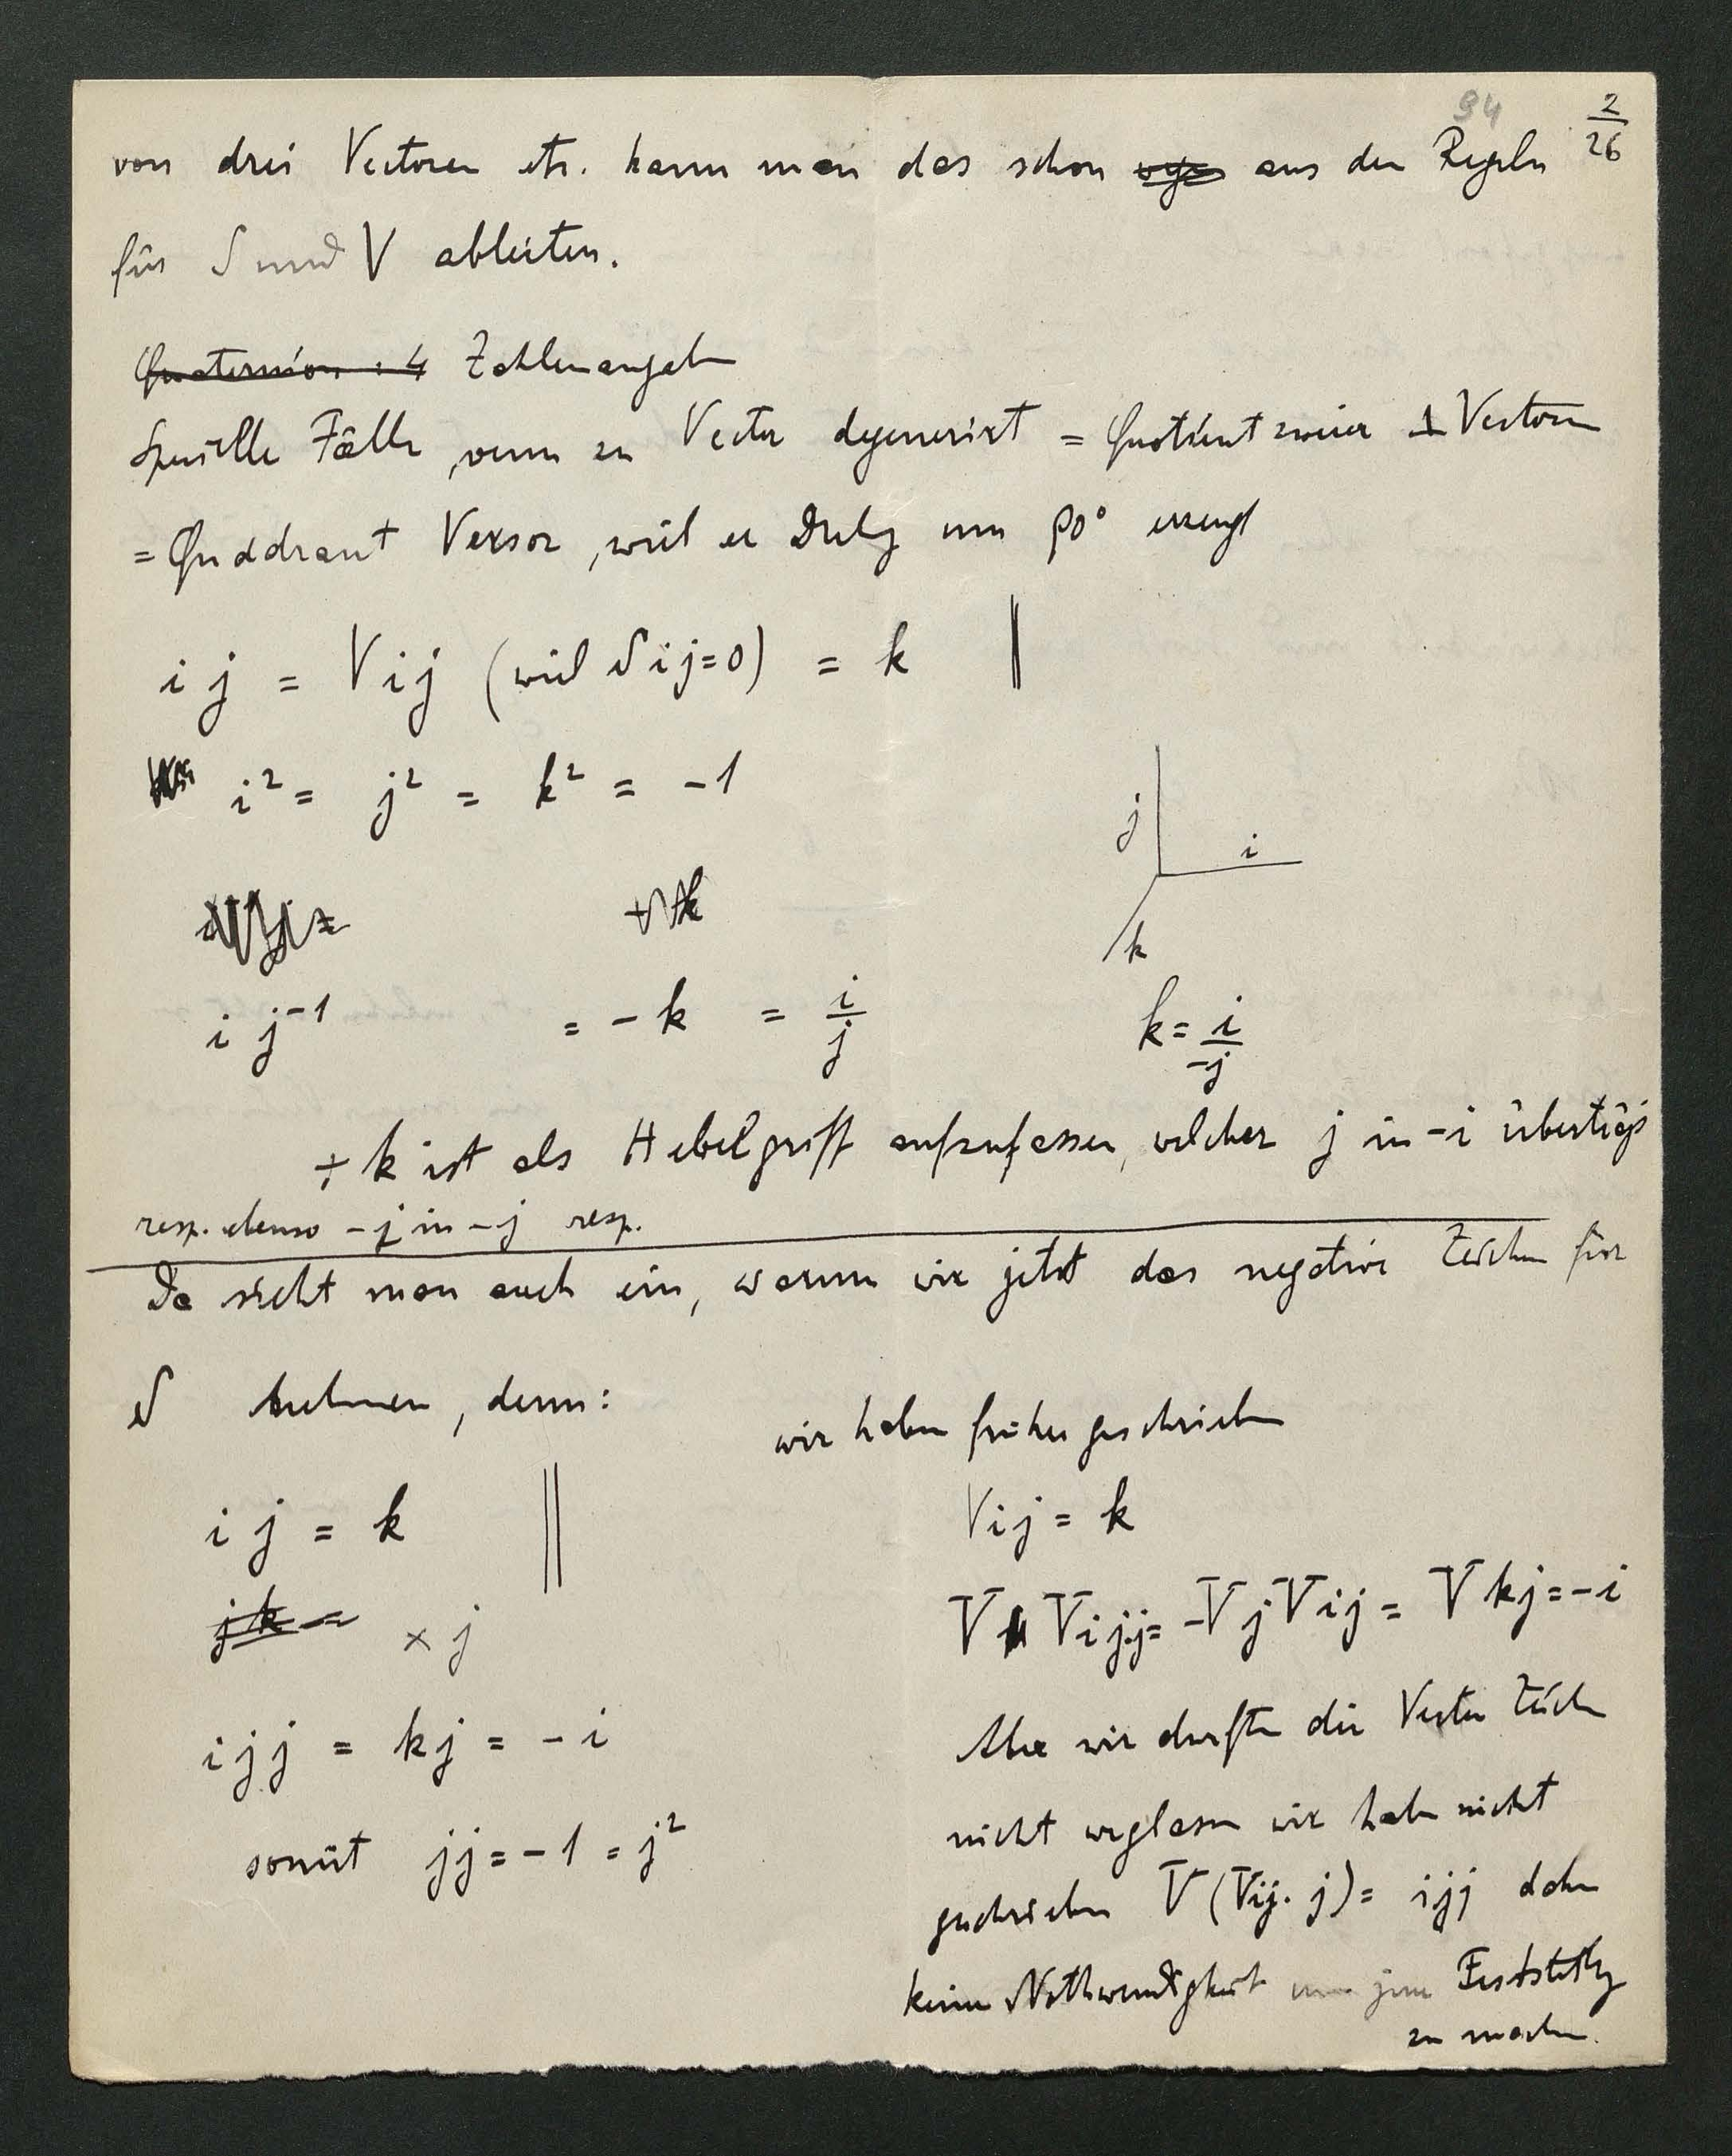 94
2/26
von drei Vectoren etc. kann man das schon aus den Regeln
für S und V ableiten.
Quaternion : 4 Zahlenangaben
Spezielle Fälle, wenn zu Vector degenerirt = Quotient zweier ⊥ Vectoren
= Quadrant Versor, weil er Drehg um 90° erzeugt
i j = V i j (weil S i j = 0) = k
i² = j² = k² = -1
j
i
k
i j⁻¹ = - k = i/j
k = i/-j
+ k ist als Hebelgriff aufzufassen, welcher j in -i überträgt
resp. ebenso - j in - j resp.
Da sieht man auch ein, warum wir jetzt das negative Zeichen für
S nehmen, denn:
wir haben früher geschrieben
i j = k
V i j = k
j k =
× j
V V i j j = - V j V i j = V k j = - i
i j j = k j = - i
Aber wir durften die Vector Zeichen
somit j j = - 1 = j²
nicht weglassen wir haben nicht
geschrieben V (V i j . j) = i j j daher
keine Nothwendigkeit um jene Feststellg
zu machen.